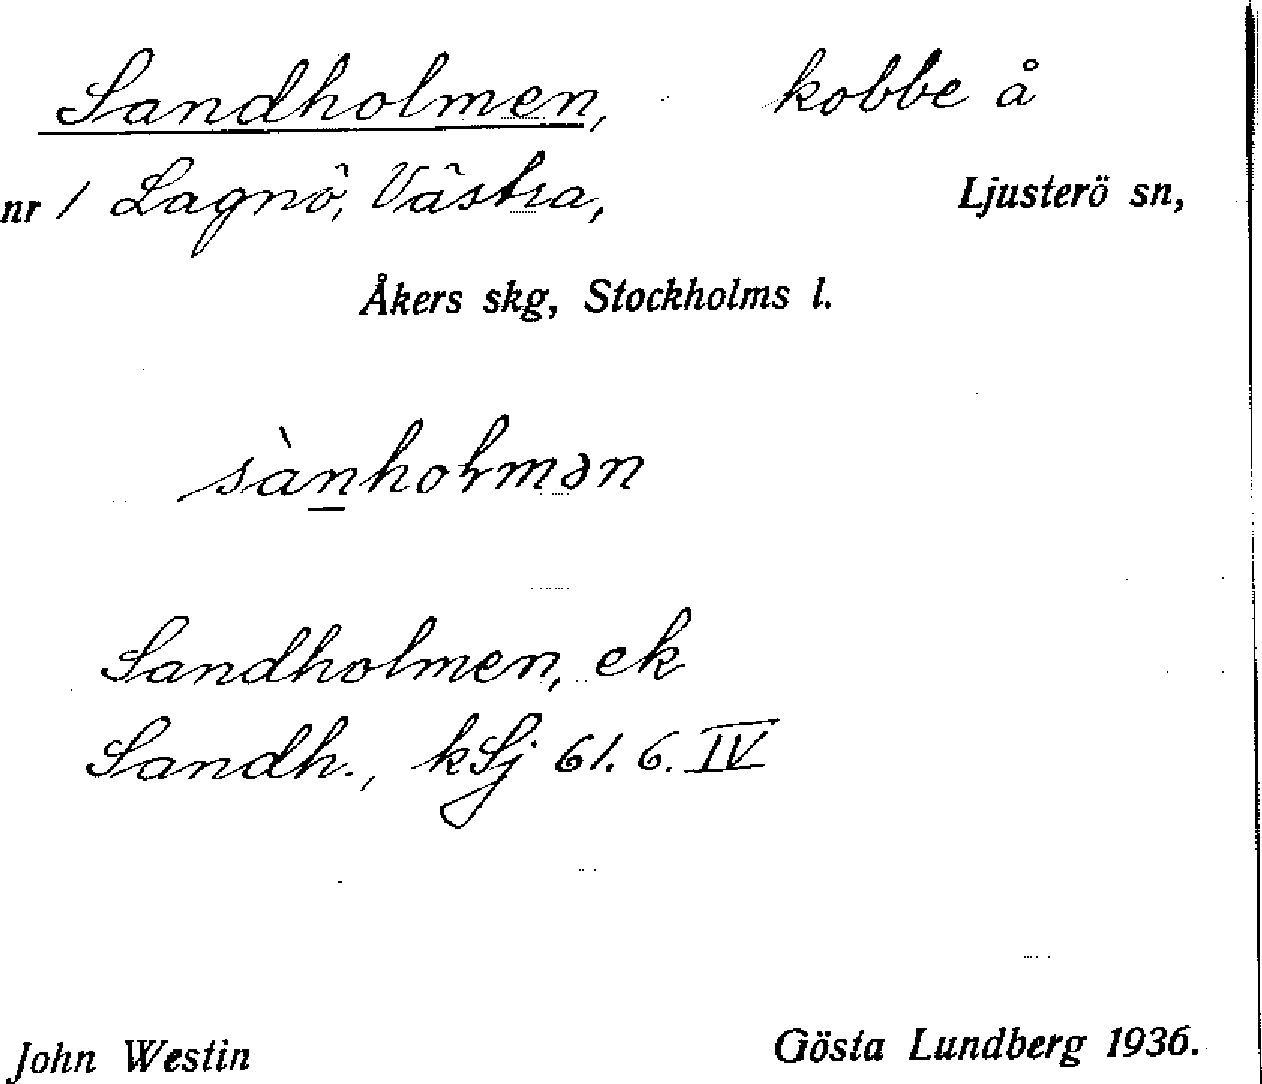 Sandholmen, kobbe å
nr 1 Lagnö, Västra, Ljusterö sn,
Åkers skg, Stockholms l.
sànholmən
Sandholmen, ek
Sandh., kSj 61. 6. IV
John Westin Gösta Lundberg 1936.